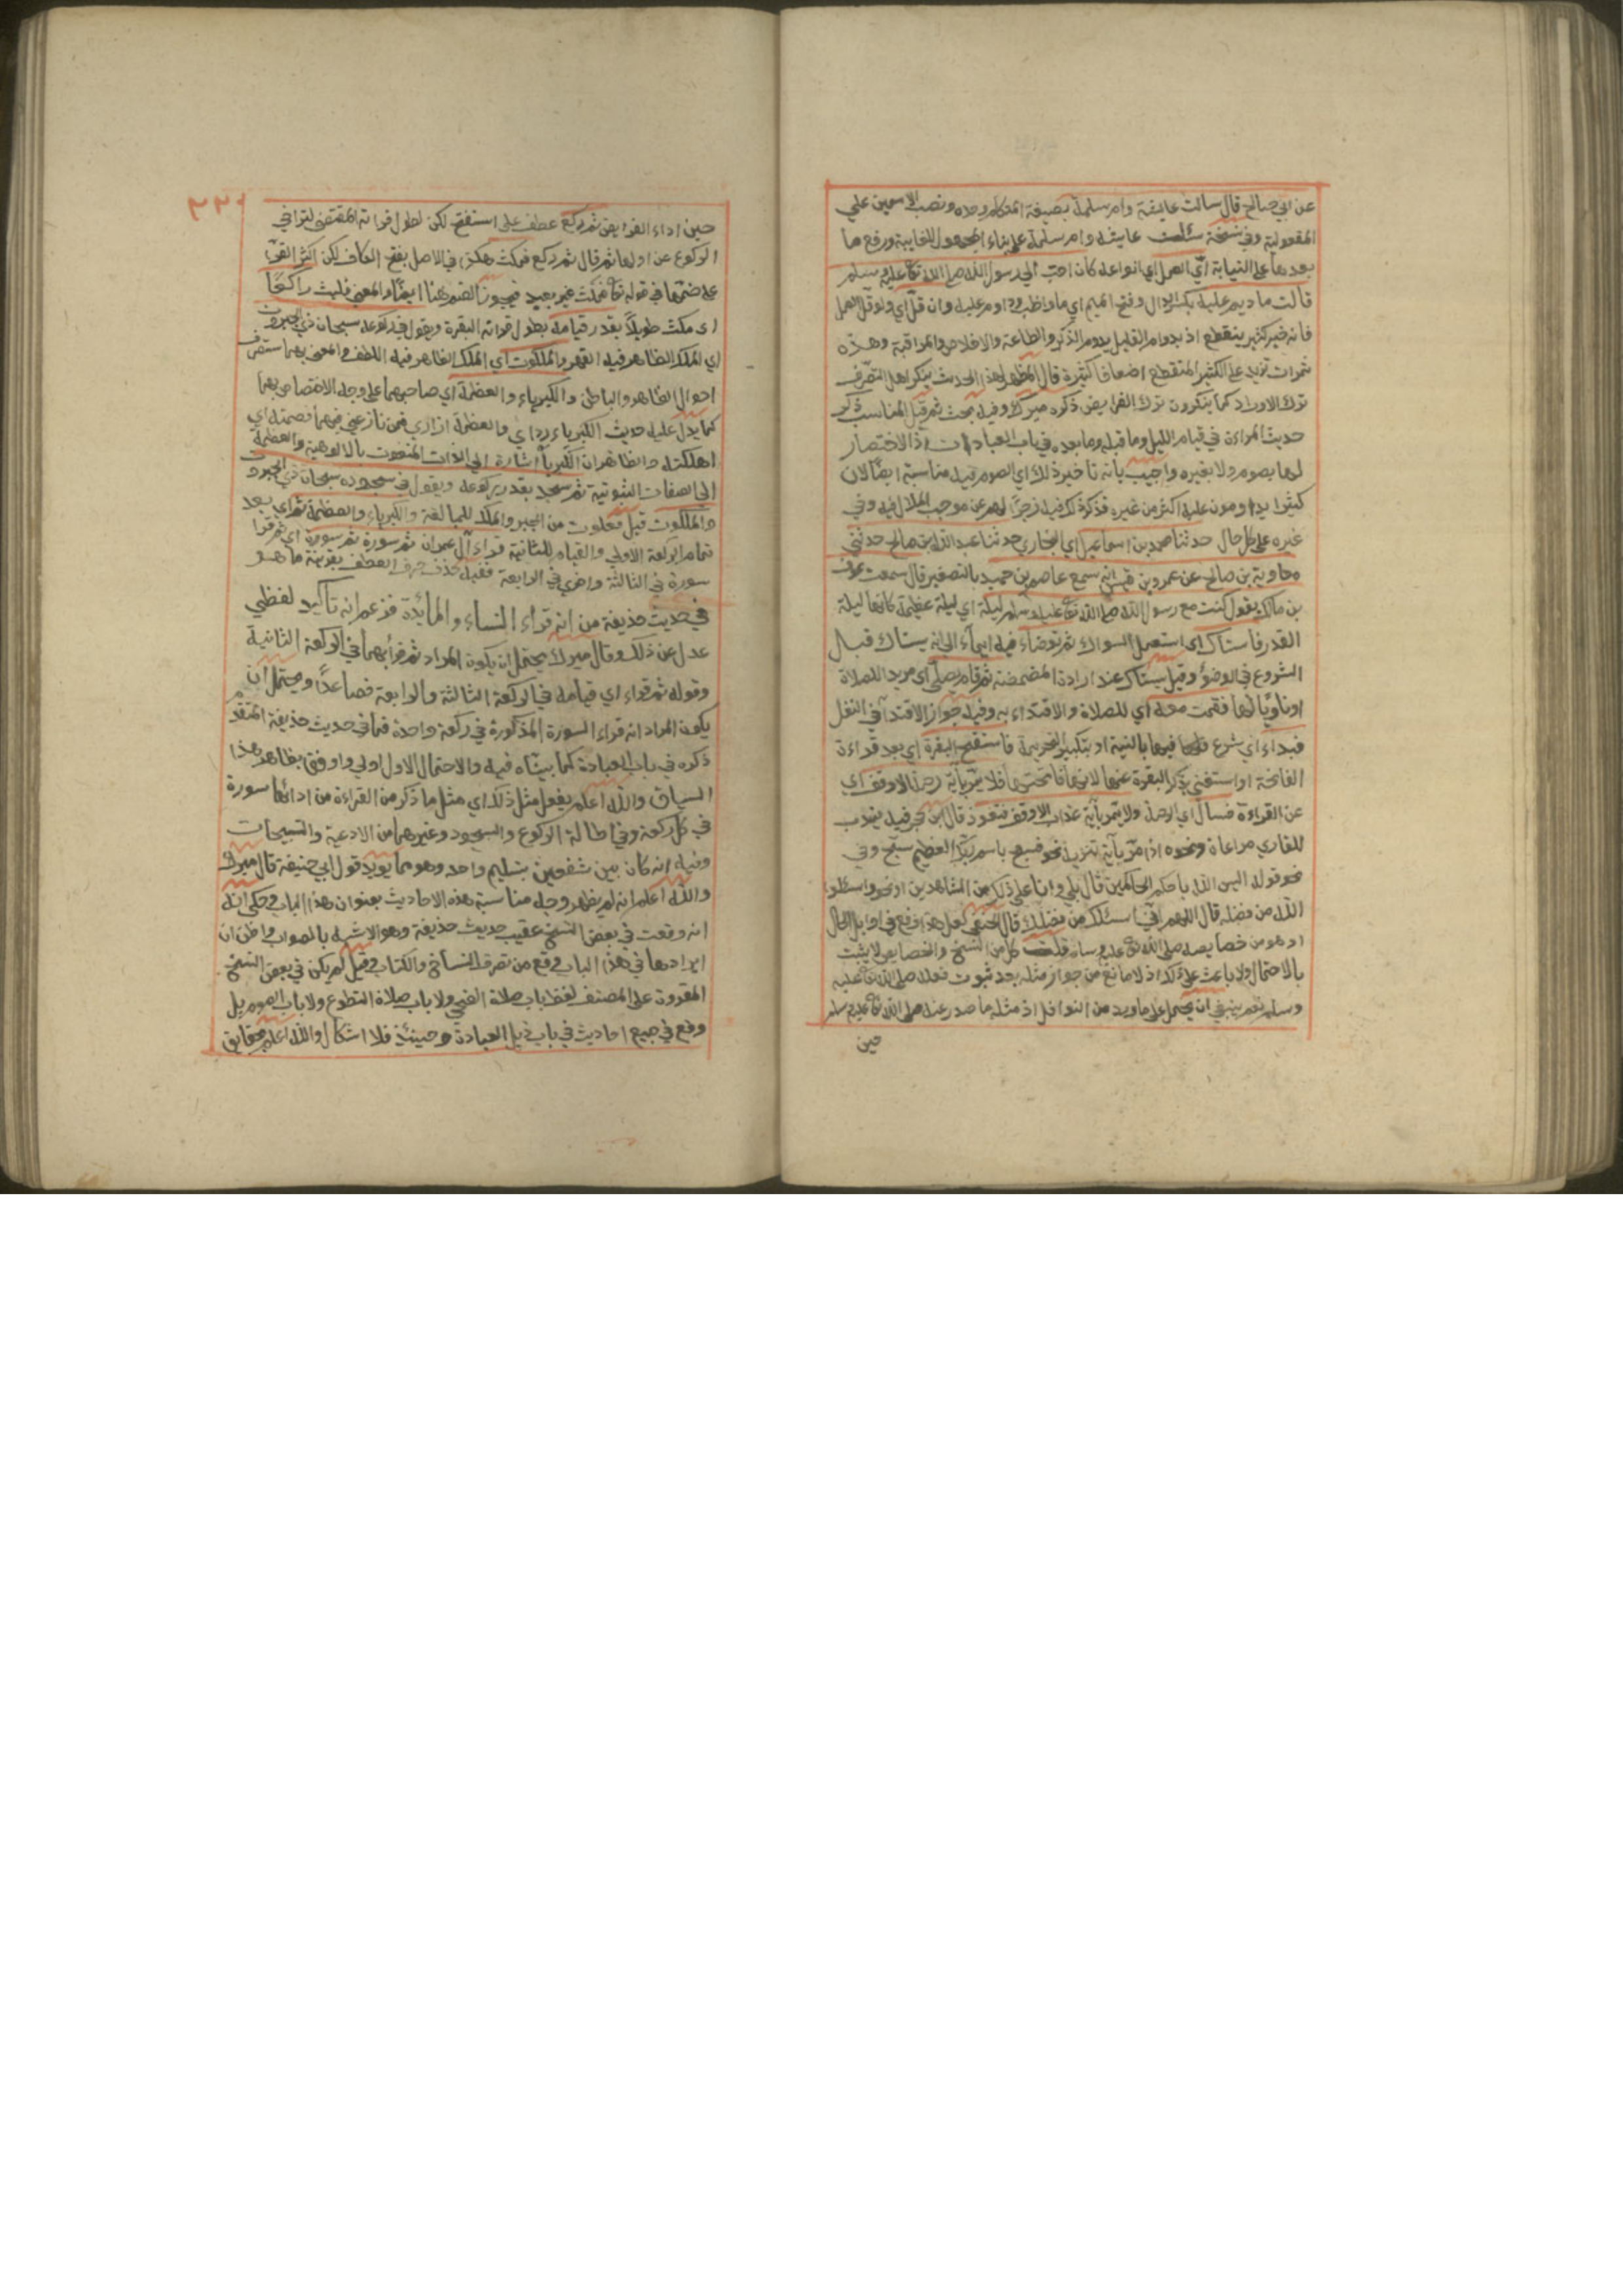 عن ابي صالح قال سالت عايشة وام سلمة بصيغة المتكلم وحده ونصب الاسمين علي
المفعولية وفي نسخة سئلت عايشه وام سلمة علي بناء المجهول للغايبة ورفع ما
بعدها علي النيابة اي العمل اي انواعه كان احب الي رسول الله صلي الله تع عليه وسلم
قالت ما ديم عليه بكسر الدال وفتح الميم اي ما واظب وداوم عليه وان قل اي ولو قل العمل
فانه خير كثير ينقطع اذ بدوام القليل يدوم الذكر والطاعة والاخلاص والمراقبة وهذه
ثمرات تزيد علي الكثير المنقطع اضعافا كثيرة قال المظهر لهذا الحديث ينكر اهل التصوف
ترك الاوراد كما ينكرون ترك الفرايض ذكره ميرك وفيه بحث ثم قيل المناسب ذكر
حديث المراءة في قيام الليل وما قبله وما بعده في باب العبادة اذ لا اختصار
لها بصوم ولا بغيره واجيب بانه تا خير ذلك اي الصوم فيه مناسبة ايضا لان
كثيرا يداومون عليه اكثر من غيره فذكر ذلك فيه زجرا لهم عن موجب الملال فيه وفي
غيره علي كل حال حدثنا محمد بن اسماعيل اي البخاري حدثنا عبد الله بن صالح حدثني
معاوية بن صالح عن عمرو بن قيس انه سمع عاصم بن حميد بالتصغير قال سمعت عوف
بن مالك يقول كنت مع رسول الله صلي الله تع عليه وسلم ليلة اي ليلة عظيمة كانها ليلة
القدر فاستاك اي استعمل السواك ثم توضاء فيه ايماء الي انه يستاك قبل
الشروع في الوضؤ وقيل يستاك عند ارادة المضمضة ثم قام يصلي اي مريد الصلاة
او ناويا لها فقمت معه اي للصلاة والاقتداء به وفيه جواز الاقتدآ في النفل
فبداء اي شرع فيها بالنية او بتكبير التحريمة فاستفتح البقرة اي بعد قراءة
الفاتحة او استغني بذكر البقرة عنها لانها فاتحتها فلا يمر بآية رحمة الا وقف اي
عن القراءة فسال اي الرحمة ولا يمر بآية عذاب الا وقف فتعوذ قال ابن حجر فيه يندب
للقاري مراعاة ونحوه اذا مر بآية تنزيه نحو فسبح باسم ربك العظيم سبح وفي
نحو قوله اليس الله باحكم الحاكمين قال بلي وانا علي ذلك من الشاهدين او نحو واسئلوا
الله من فضله قال اللهم اني اسئلك من فضلك قال الحنفي لعل هذا وقع في اوايل الحال
او هو من خصايصه صلي الله تع عليه وسلم قلت كل من النسخ والخصايص لا يثبت
بالاحتمال ولا باعث علي ذلك اذ لا مانع من جواز مثله بعد ثبوت فعله صلي الله تع عليه
وسلم نعم ينبغي ان يحمل علي ما ورد من النوافل اذ مثله ما صدر عنه صلي الله تع عليه وسلم
حين
٣٣٠
حين اداء الفرايض ثم ركع عطف علي استفتح لكن لطول قراته المقتضي لتراخي
الركوع عن اولها ثم قال ثم ركع فمكث هكذا في الاصل بفتح الكاف لكن اكثر القراء
علي ضمها في قوله تع فمكث غير بعيد فيجوز الضم هنا ايضا والمعني فلبث راكعا
اي مكث طويلا بقدر قيامه بطول قراته البقرة ويقول في ركوعه سبحان ذي الجبروت
اي الملك الظاهر فيه القهر والملكوت اي الملك الظاهر فيه اللطف والمعني بهما متصرف
احوال الظاهر والباطن والكبرياء والعظمة اي صاحبهما علي وجه الاختصاص بهما
كما يدل عليه حديث الكبرياء رداي والعظمة ازاري فمن نازعني فيهما قصمته اي
اهلكته والظاهر ان الكبرياء اشارة الي الذات المنعوت بالالوهية والعظمة
الي الصفات الثبوتية ثم سجد بقدر ركوعه ويقول في سجوده سبحان ذي الجبروت
والملكوت قيل فعلوت من الجبر والملك للمبالغة والكبرياء والعظمة ثم اي بعد
تمام الركعة الاولي والقيام للثانية قراء آل عمران ثم سورة ثم سورة اي ثم قرا
سورة في الثالثة واخري في الرابعة ففيه حذف حرف العطف بقرينة ما هو
في حديث حذيفة من انه قراء النساء والمائدة فزعم انه تاكيد لفظي
عدل عن ذلك وقال ميرك يحتمل ان يكون المراد ثم قرأ بهما في الركعة الثانية
وقوله ثم قراء اي قيامه في الركعة الثالثة والرابعة فصاعدا ويحتمل ان
يكون المراد انه قراء السورة المذكورة في ركعة واحدة كما في حديث حذيفة المتقدم
ذكره في باب العبادة كما بيناه فيه والاحتمال الاول اولي واوفق بظاهر هذا
السياق والله اعلم يفعل مثل ذلك اي مثل ما ذكر من القراءة من ادائها سورة
في كل ركعة وفي اطالة الركوع والسجود وغيرهما من الادعية والتسبيحات
وفيه انه كان بين شفعين بتسليم واحد وهو مما يويد قول ابي حنيفة قال ميرك
والله اعلم انه لم يظهر وجه مناسبة هذه الاحاديث بعنوان هذا الباب وحكي انه
انه وقعت في بعض النسخ عقيب حديث حذيفة وهو الاشبه بالصواب واظن ان
ايرادها في هذا الباب وقع من تصرف النساخ والكتاب وقيل لم يكن في بعض النسخ
المقروة علي المصنف لفظ باب صلاة الضحي ولا باب صلاة التطوع ولا باب الصوم بل
وقع في جميع احاديث في باب ذيل العبادة وحينئذ فلا اشكال والله اعلم بحقايق